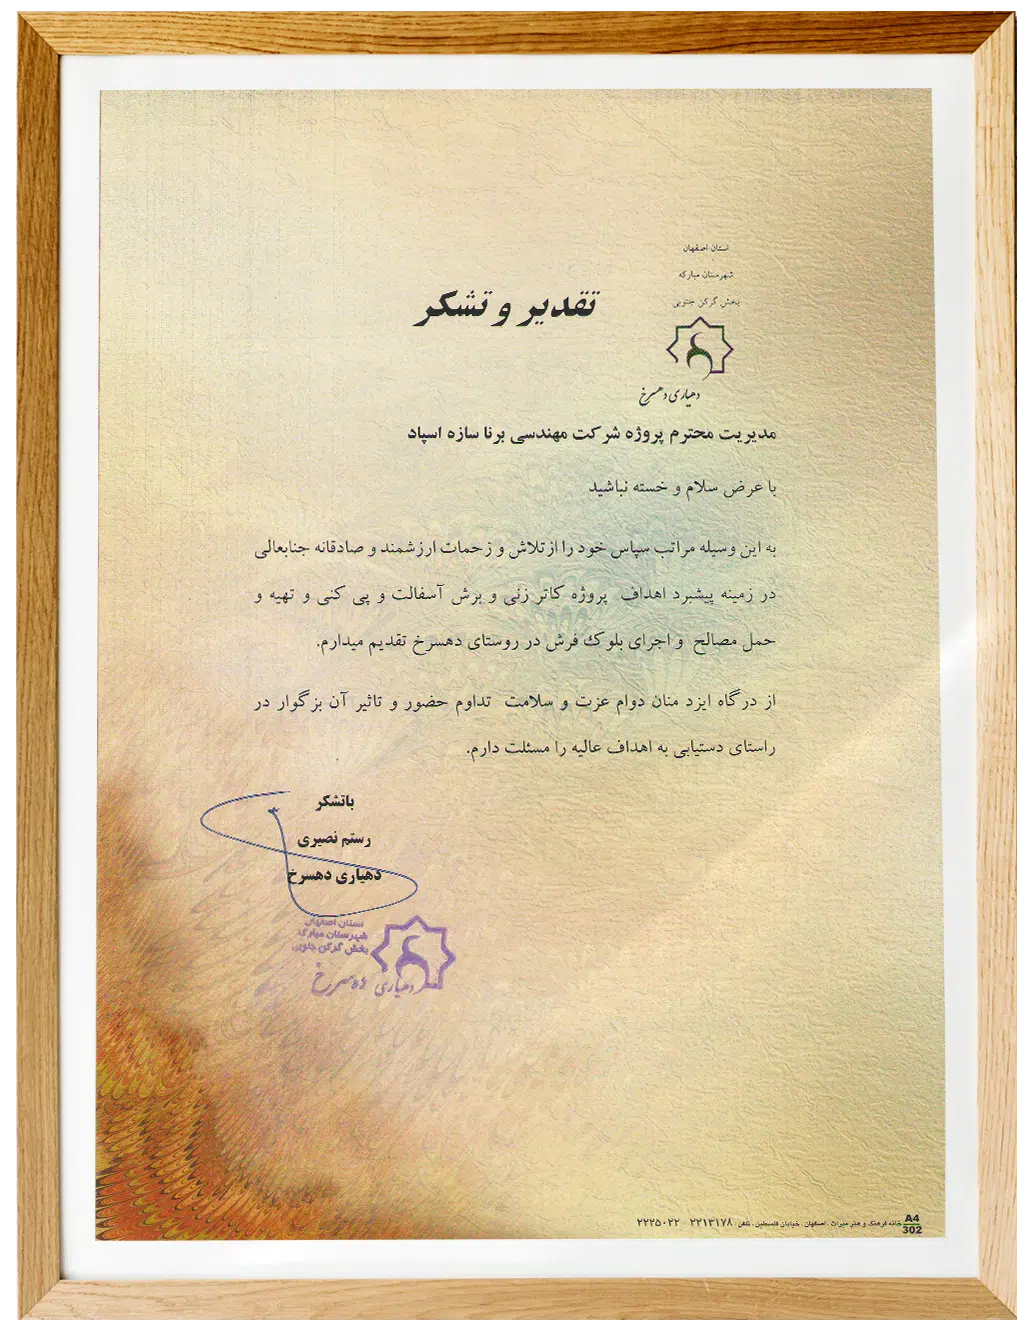 استان اصفهان
شهرستان مبارکه
بخش گرکن جنوبی
تقدیر و تشکر
دهیاری دهسرخ
مدیریت محترم پروژه شرکت مهندسی برنا سازه اسپاد
با عرض سلام و خسته نباشید
به این وسیله مراتب سپاس خود را از تلاش و زحمات ارزشمند و صادقانه جنابعالی
در زمینه پیشبرد اهداف پروژه کاتر زنی و برش آسفالت و پی کنی و تهیه و
حمل مصالح و اجرای بلوک فرش در روستای دهسرخ تقدیم میدارم.
از درگاه ایزد منان دوام عزت و سلامت تداوم حضور و تاثیر آن بزگوار در
راستای دستیابی به اهداف عالیه را مسئلت دارم.
باتشکر
رستم نصیری
دهیاری دهسرخ
استان اصفهان
شهرستان مبارکه
بخش گرکن جنوبی
دهیاری دهسرخ
خانه فرهنگ و هنر میراث . اصفهان . خیابان فلسطین . تلفن : ۲۲۱۳۱۷۸ - ۲۲۲۵۰۲۲
A4
302